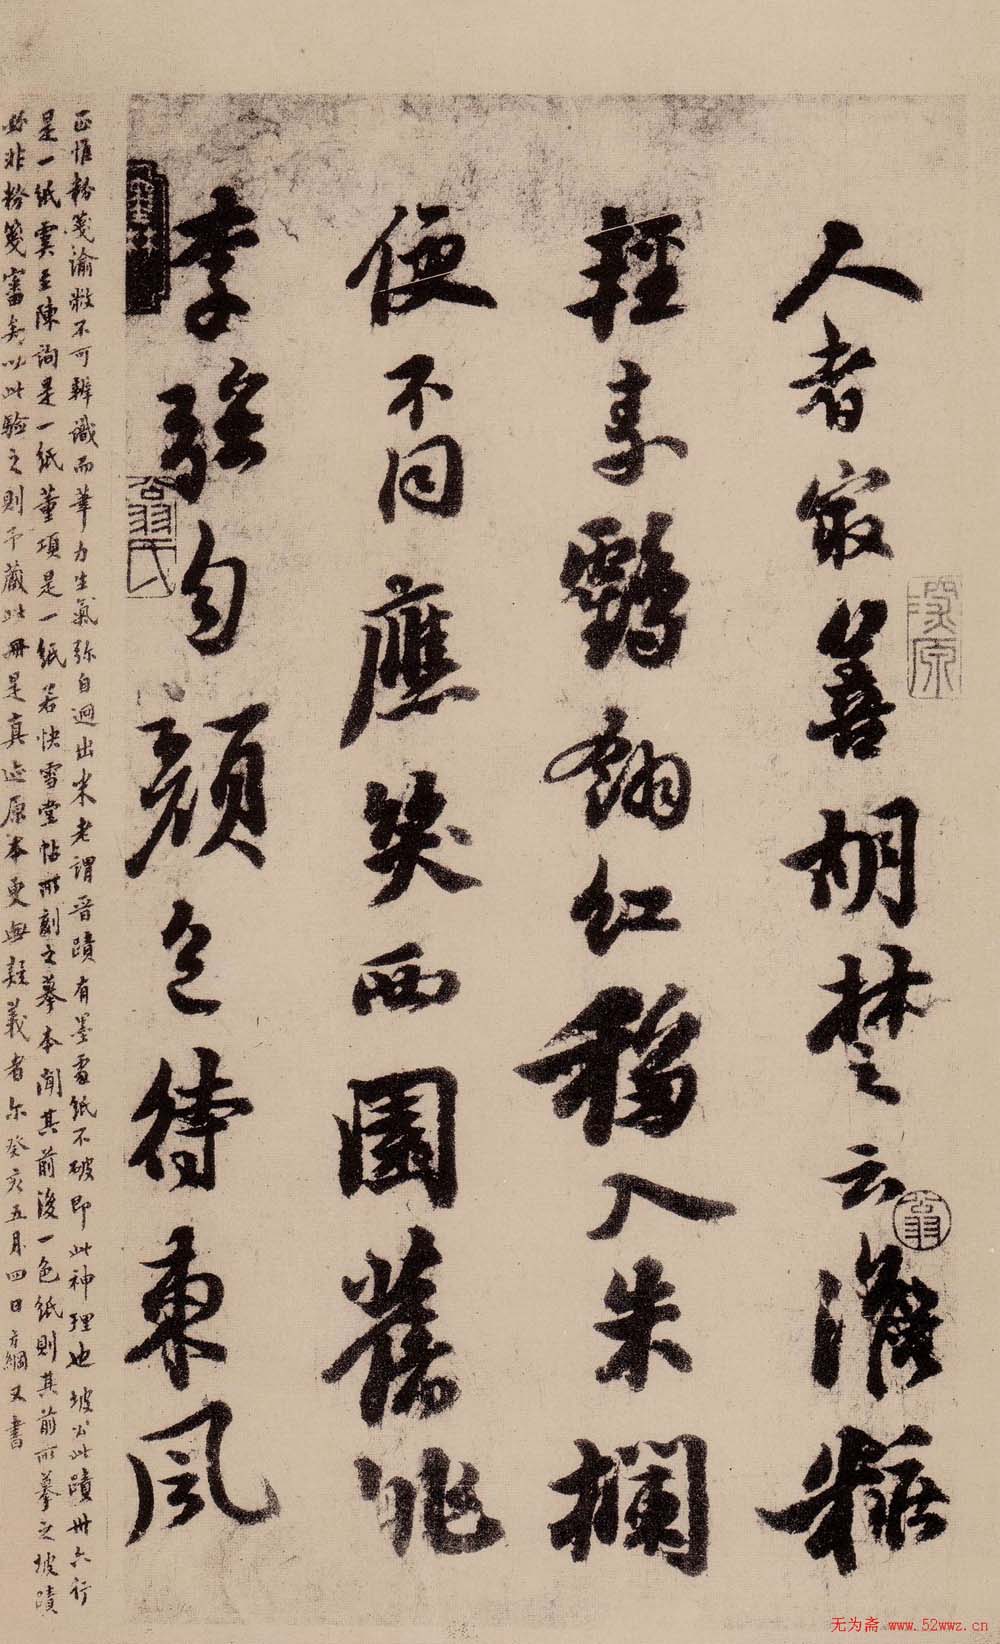 人者㝡善胡楚云澹粧
輕素鶴翎紅移入朱欄
便不同應笑西園舊桃
李强勻顏色待東風
正惟粉箋渝敝不可辨識而筆力生氣弥自迥出米老謂晉蹟有墨處紙不破即此神理也坡公此蹟卅六行
是一紙虞至陳詢是一紙董項是一紙若快雪堂帖所刻之摹本聞其前後一色紙則其前所摹之坡蹟
必非粉箋審矣以此驗之則予藏此冊是真迹原本更無疑義者尔癸亥五月四日方綱又書
翁
翁氏
无为斋 www.52wwz.cn